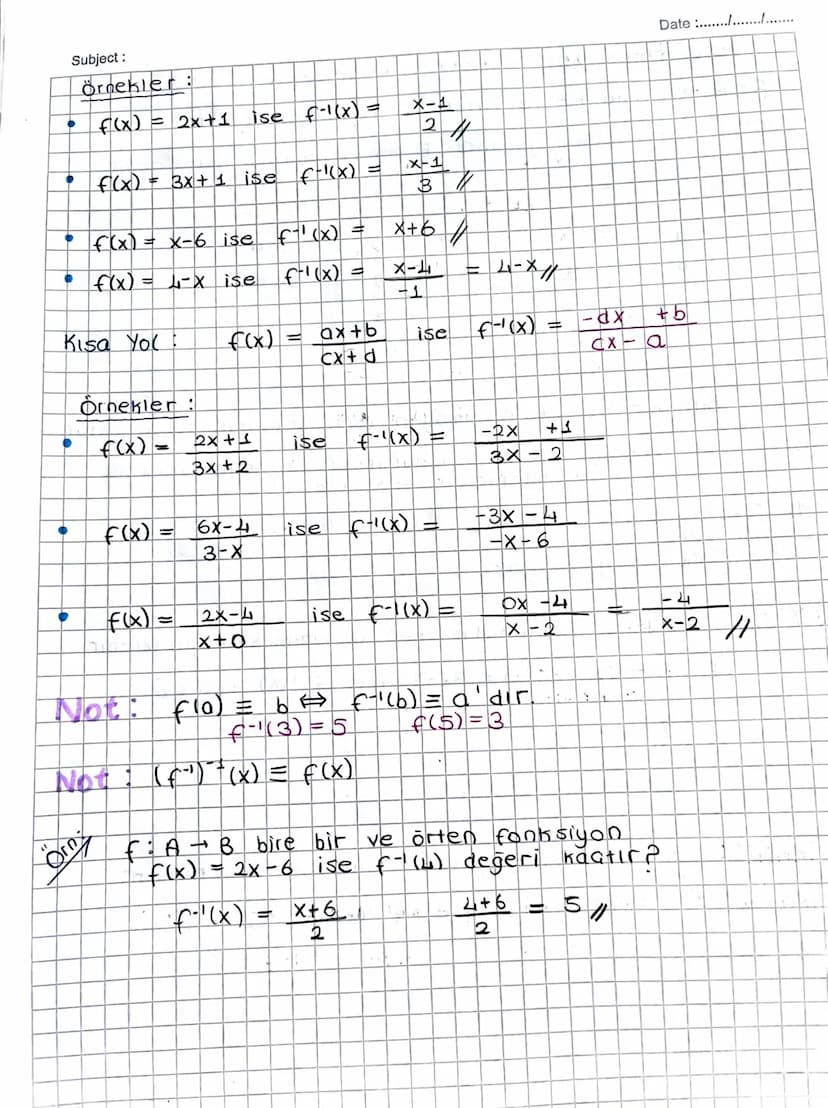 Date :......./......./.......
Subject :
Örnekler :
• f(x) = 2x+1 ise f⁻¹(x) = (x-1)/2 //
• f(x) = 3x+1 ise f⁻¹(x) = (x-1)/3 //
• f(x) = x-6 ise f⁻¹(x) = x+6 //
• f(x) = 4-x ise f⁻¹(x) = (x-4)/-1 = 4-x //
Kısa Yol : f(x) = (ax+b)/(cx+d) ise f⁻¹(x) = (-dx +b)/(cx-a)
Örnekler :
• f(x) = (2x+1)/(3x+2) ise f⁻¹(x) = (-2x +1)/(3x-2)
• f(x) = (6x-4)/(3-x) ise f⁻¹(x) = (-3x-4)/(-x-6)
• f(x) = (2x-4)/(x+0) ise f⁻¹(x) = (0x-4)/(x-2) = -4/(x-2) //
Not : f(a) ≡ b ⇔ f⁻¹(b) ≡ a'dır.
f⁻¹(3) = 5 f(5) = 3
Not : (f⁻¹)⁻¹(x) ≡ f(x)
Örn: f : A → B bire bir ve örten fonksiyon
f(x) = 2x-6 ise f⁻¹(4) değeri kaçtır?
f⁻¹(x) = (x+6)/2 (4+6)/2 = 5 //